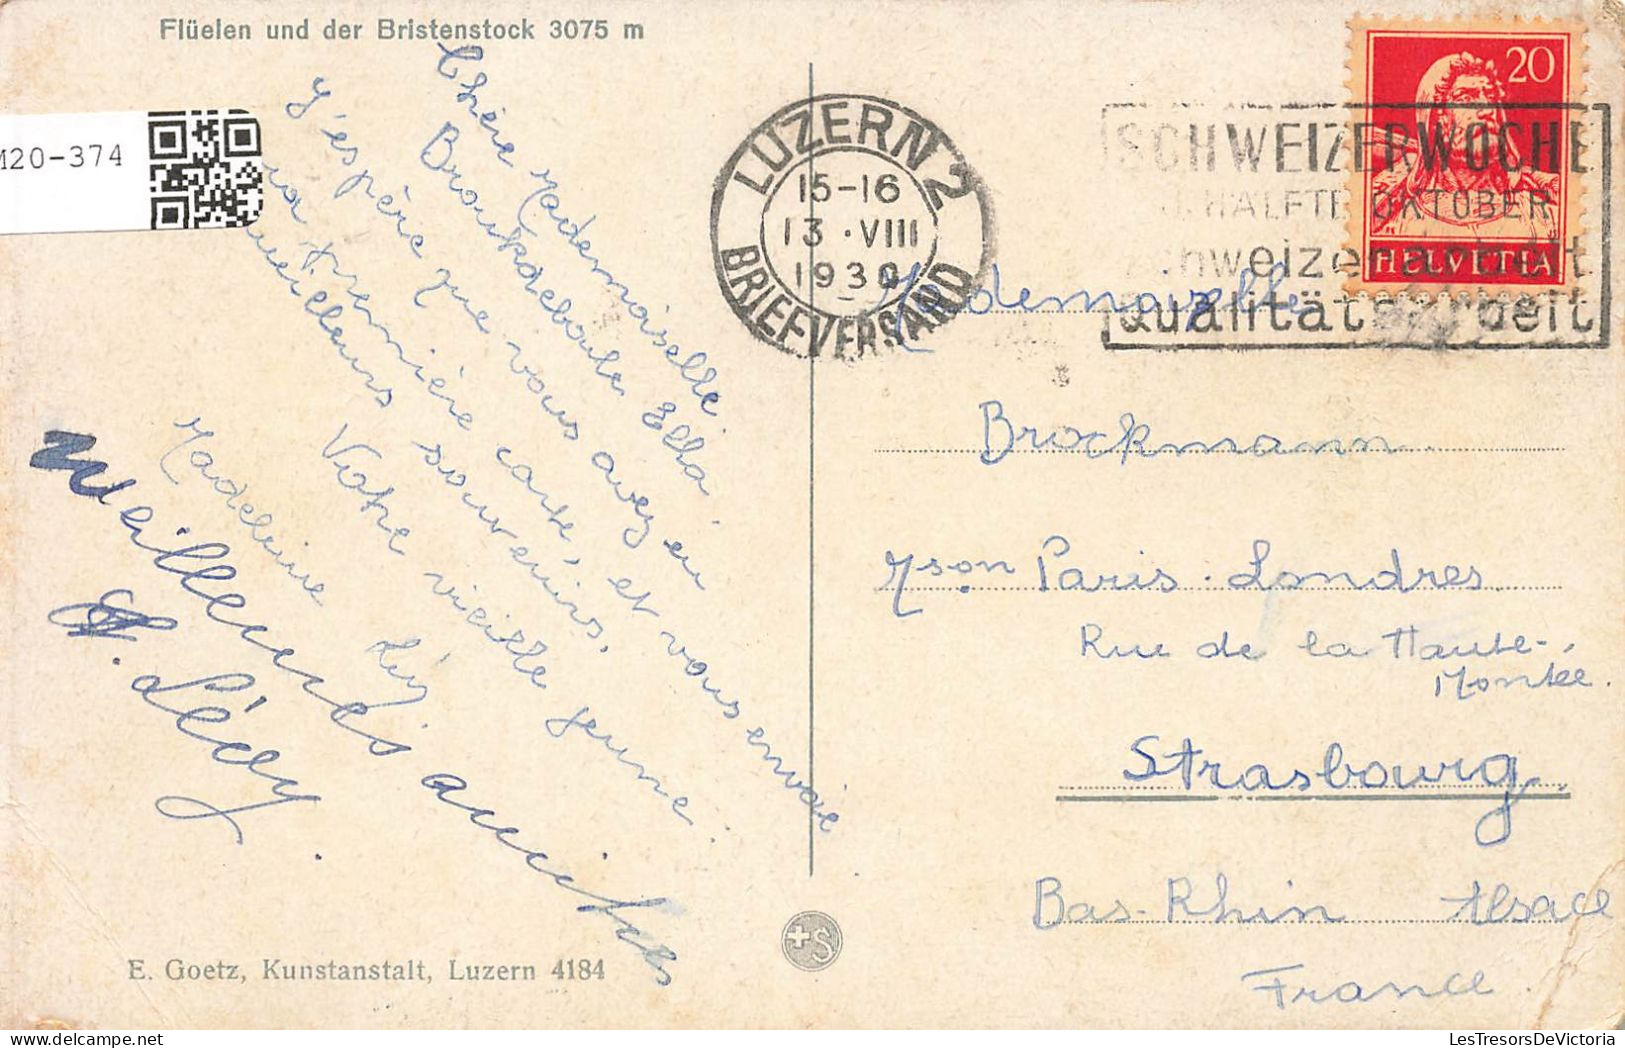 Flüelen und der Bristenstock 3075 m
M20-374
Chère Mademoiselle
Ella
J'espère que vous avez eu
ma première carte, et vous envoie
meilleurs souvenirs.
Votre vieille jeune
Madeleine Lévy
meilleures amitiés
Lévy.
E. Goetz, Kunstanstalt, Luzern 4184
LUZERN 2
15-16
13.VIII
1930
BRIEFVERSAND
20
HELVETIA
SCHWEIZERWOCHE
HÄLFTE OKTOBER
Schweizerarbeit
Qualitätsarbeit
+S
Mademoiselle
Brockmann
Mson Paris-Londres
Rue de la Haute-
Montée.
Strasbourg
Bas-Rhin Alsace
France.
LesTresorsDeVictoria